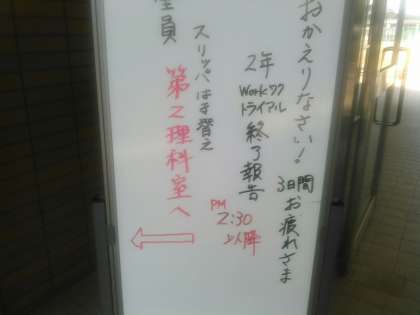 おかえりなさい!
3日間お疲れさま
2年
Workワク
トライアル
終了報告
PM
2:30
以降
スリッパはき替え
全員
第2理科室へ